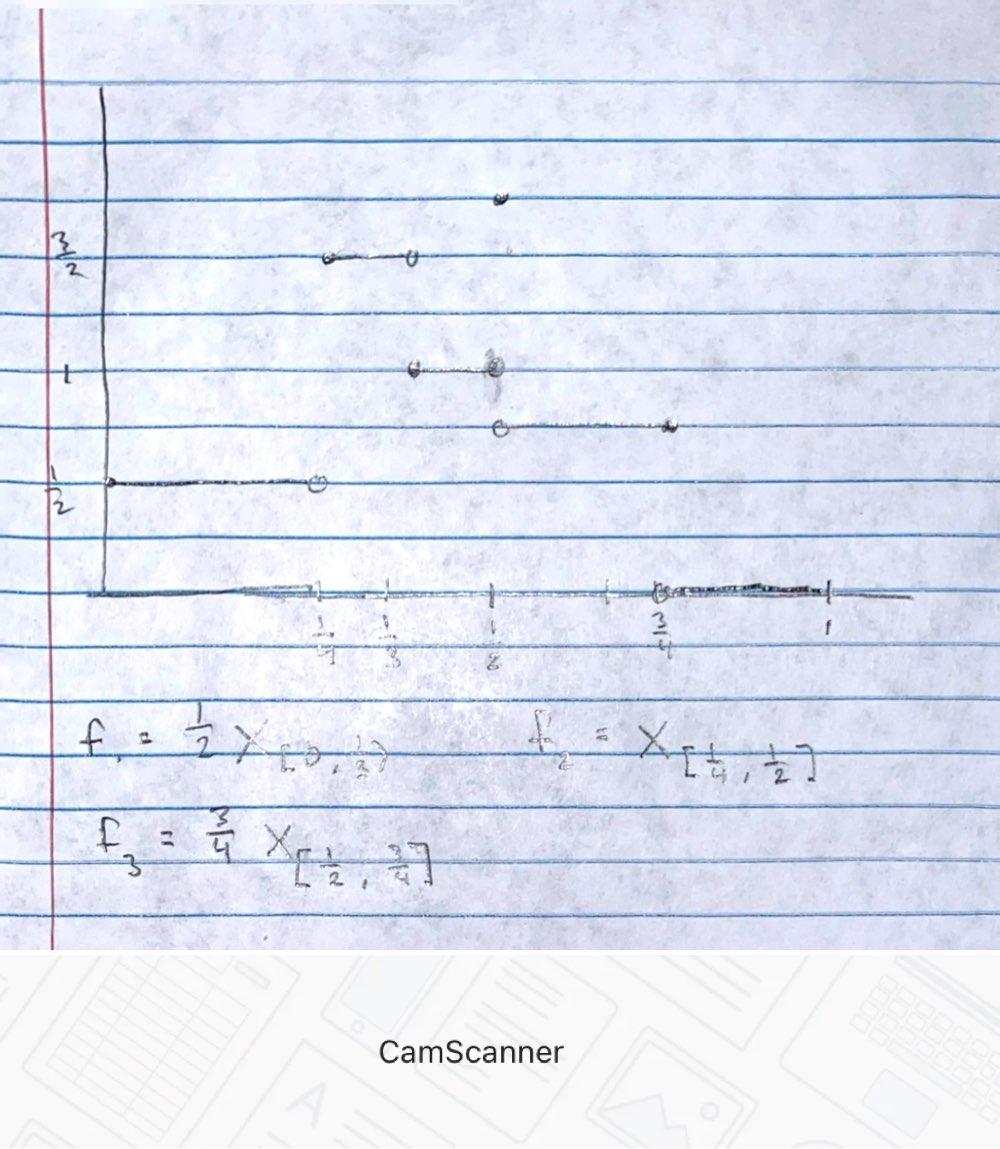 3/2
1
1/2
1/4 1/3 1/2 3/4 1
f₁ = 1/2 X[0, 1/3) f₂ = X[1/4, 1/2]
f₃ = 3/4 X[1/2, 3/4]
CamScanner